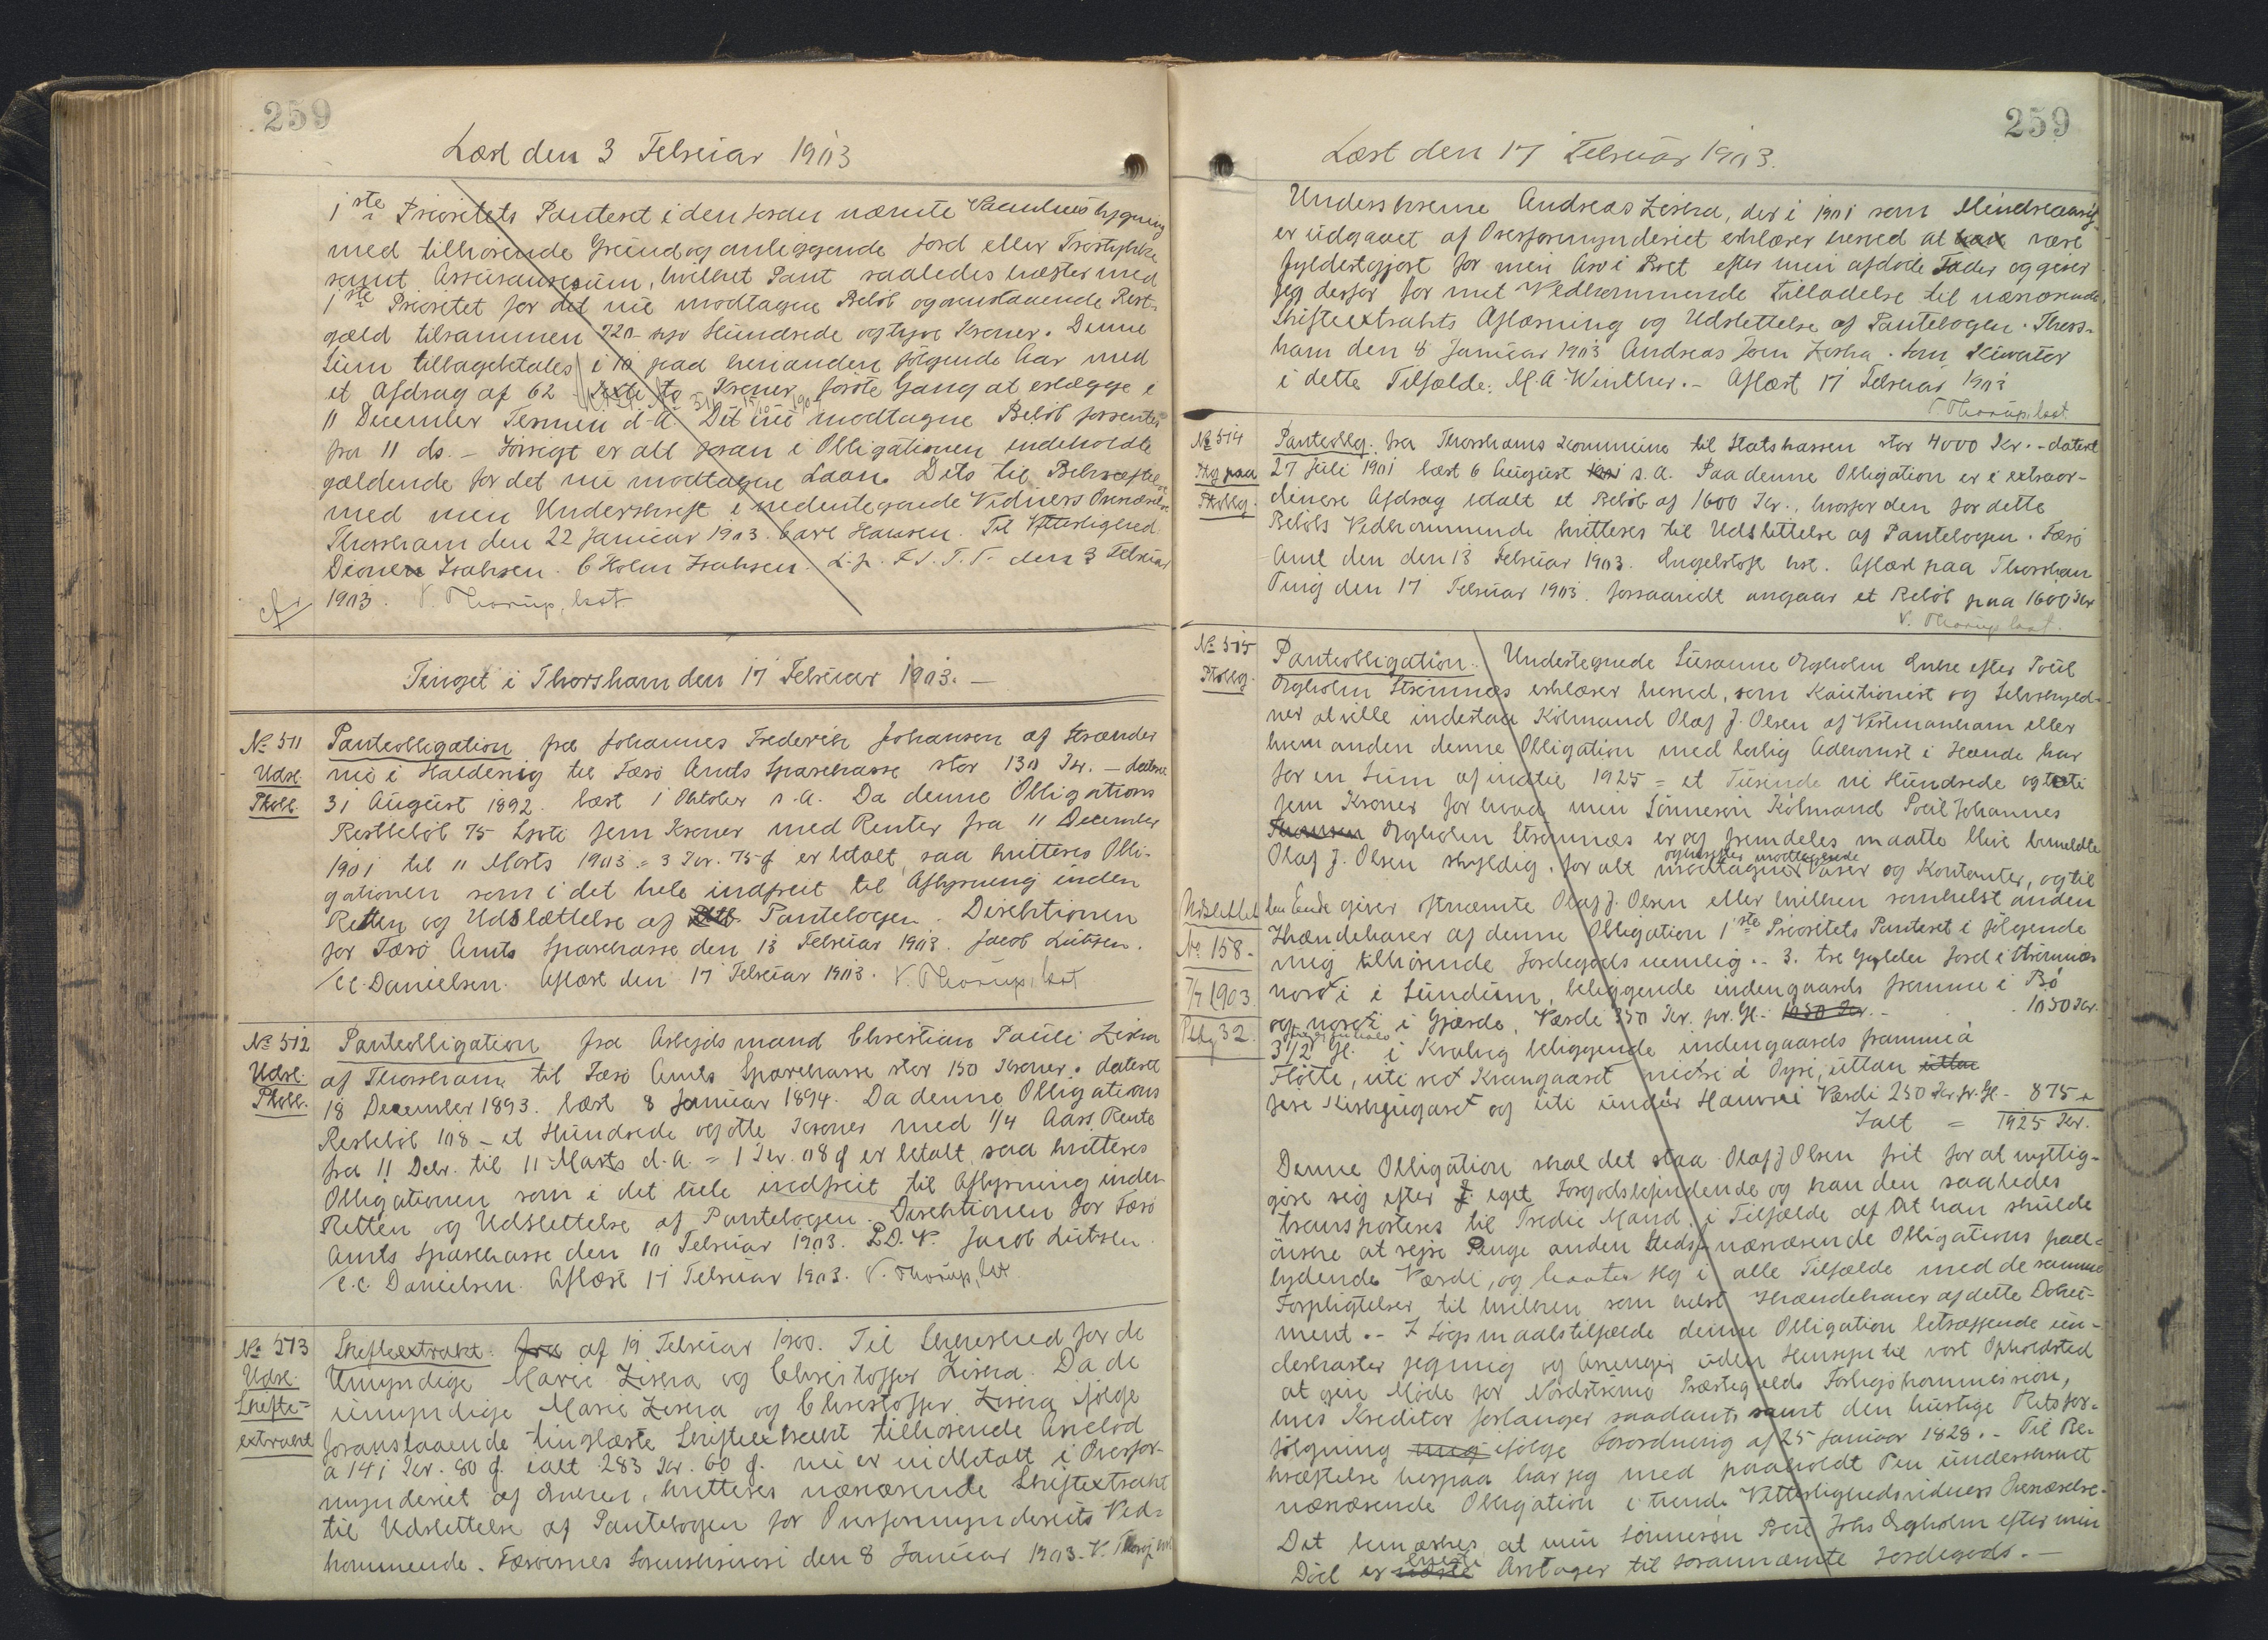 259
Læst den 3 Februar 1903
1ste Prioritets Panteret i den foran nævnte Vaaningsbygning
med tilhörende Grund og anliggende Jord eller Tröstykke
samt Assurancesum, hvilket Pant saaledes hæfter med
1ste Prioritet for det nu modtagne Belöb og ovenstaaende Rest-
gæld tilsammen 720 syv Hundrede og tyve Kroner. Denne
Sum tilbagebetales i 10 paa hverandre fölgende Aar med
et Afdrag af 62 Kroner, förste Gang at erlægge i
11 December Termin d. A. Det nu modtagne Belöb forrentes
fra 11 ds. - Iövrigt er alt foran i Obligationen indeholdte
gældende for det nu modtagne Laan. Dets til Bekræftelse
med min Underskrift i nedentegnede Vidners Overværelse.
Thorshavn den 22 Januar 1903. Carl Hansen. Til Vitterlighed
Isaksen. C Holm Isaksen. L. p. F. S. T. T. den 3 Februar
1903. V. Thorup, kst
cf
Tinget i Thorshavn den 17 Februar 1903. -
No 511
Udsl.
Ptobl.
Panteobligation fra Johannes Frederik Johansen af Strænder
nu i Haldervig til Færö Amts Sparekasse stor 130 Kr. - dateret
31 August 1892. læst 1 Oktober s. A. Da denne Obligations
Restbelöb 75 Syvti fem Kroner med Renter fra 11 December
1901 til 11 Marts 1903 = 3 Kr. 75 Ø er betalt, saa kvitteres Obli-
gationen som i det hele indfriet til Aflysning inden
Retten og Udslættelse af Pantebogen. Direktionen
for Færö Amts Sparekasse den 13 Februar 1903. Jacob Lützen.
/C.C. Danielsen. Aflæst den 17 Februar 1903. V. Thorup, kst
No 512
Udsl.
Ptobl.
Panteobligation fra Arbejdsmand Christian Pauli Ziska
af Thorshavn til Færö Amts Sparekasse stor 150 Kroner. dateret
18 December 1893. læst 8 Januar 1894. Da denne Obligations
Restbelöb 108 - et Hundrede og otte Kroner med 1/4 Aars Rente
fra 11 Debr. til 11 Marts d. A. = 1 Kr. 08 Ø er betalt, saa kvitteres
Obligationen som i det hele indfriet til Aflysning inden
Retten og Udslettelse af Pantebogen. Direktionen for Færö
Amts Sparekasse den 10 Februar 1903. P.D.V. Jacob Lützen.
/C.C. Danielsen. Aflæst 17 Februar 1903. V. Thorup, kst
No 513
Udsl.
Skifte-
extrakt
Skifteextrakt. fra af 19 Februar 1900. Til Sikkerhed for de
Umyndige Marie Ziska og Christoffer Ziska. Da de
umyndige Marie Ziska og Christoffer Ziska ifölge
foranstaaende tinglæste Skifteextrakt tilhörende Arvelod
a 141 Kr. 80 Ø. ialt 283 Kr. 60 Ø. nu er indbetalt i Overfor-
mynderiet af Enken, kvitteres nærværende Skiftextrakt
til Udslettelse af Pantebogen for Overformynderiets Ved-
kommende. Færöernes Sorenskriveri den 8 Januar 1903. V. Thorup kst
259
Læst den 17 Februar 1903.
Underskrevne Andreas Ziska, der i 1901 som Mindreaarig
er udgaaet af Overformynderiet erklærer herved at være
fyldestgjort for min Arv i Boet efter min afdöde Fader og giver
jeg derfor for mit Vedkommende Tilladelse til nærværende
Skifteextrakts Aflæsning og Udslettelse af Pantebogen. Thors-
havn den 8 Januar 1903 Andreas Joen Ziska. Som Kurator
i dette Tilfælde: M. A. Winther. - Aflæst 17 Februar 1903
V. Thorup, kst.
No 514
Ptg paa
Ptoblg.
Panteoblg. fra Thorshavns Kommune til Statskassen stor 4000 Kr. - dateret
27 Juli 1901 læst 6 August s. A. Paa denne Obligation er i extraor-
dinære Afdrag ialt et Belöb af 1600 Kr., hvorfor den for dette
Belöbs Vedkommende kvitteres til Udslettelse af Pantebogen. Færö
Amt den den 13 Februar 1903. Engelstoft kst. Aflæst paa Thorshavn
Ting den 17 Februar 1903. forsaavidt angaar et Belöb paa 1600 Kr
V. Thorup kst.
No 515
Ptoblg.
Udslettet
No 158.
7/7 1903
Ptbg 32.
Panteobligation. Undertegnede Susanne Ørgholm Enke efter Poul
Ørgholm Strömnæs erklærer herved, som Kautionist og Selvskyld-
ner at ville indestaa Köbmand Olaf J. Olsen af Vestmanhavn eller
hvem anden denne Obligation med lovlig Adkomst i Hænde har
for en Sum af indtil 1925 = et Tusinde ni Hundrede og
fem Kroner for hvad min Sönnesön Köbmand Poul Johannes
Ørgholm Strömnæs er og fremdeles maatte blive bemeldte
Olaf J. Olsen skyldig, for alt modtagne og herefter modtagende Varer og Kontanter, og til
den Ende giver fornævnte Olaf J. Olsen eller hvilken somhelst anden
Ihændehaver af denne Obligation 1ste Prioritets Panteret i fölgende
mig tilhörende Jordegods nemlig. - 3. tre Gylden Jord i Strömnæs
i Sundum, beliggende indengaards framme i Bö
og i Gjærde, Værdi 350 Kr. pr. Gl. - 1050 Kr.
3 1/2 Gl. i Kvalvig beliggende indengaards framme á
Flötte, uti vid Krangaaret nidri á Öyri, uttan
fere Kirkjugaret og uti undir Hamri Værdi 250 Kr. pr. Gl. - 875 "
Ialt = 1925 Kr.
Denne Obligation skal det staa Olaf J Olsen frit for at nyttig-
göre sig efter eget Forgodtbefindende og kan den saaledes
transporteres til Tredie Mand, i Tilfælde af at han skulde
önske at rejse Penge anden Steds p. nærværende Obligations paa-
lydende Værdi, og hæfter jeg i alle Tilfælde med de samme
Forpligtelser til hvilken som helst Ihændehaver af dette Doku-
ment. - I Sögsmaalstilfælde denne Obligation betræffende un-
derkaster jeg mig og Arvinger uden Hensyn til vort Opholdsted
at give Möde for Nordströmö Præstegjelds Forligskommission,
hvis Kreditor forlanger saadant samt den hurtige Retsfor-
fölgning ifölge Forordning af 25 Januar 1828. - Til Be-
kræftelse herpaa har jeg med paaholdt Pen underskrevet
nærværende Obligation i tvende Vitterlighedsvidners Overværelse.
Det bemærkes, at min Sönnesön Poul Johs Ørgholm efter min
Död er eneste Arvtager til forannævnte Jordegods. -